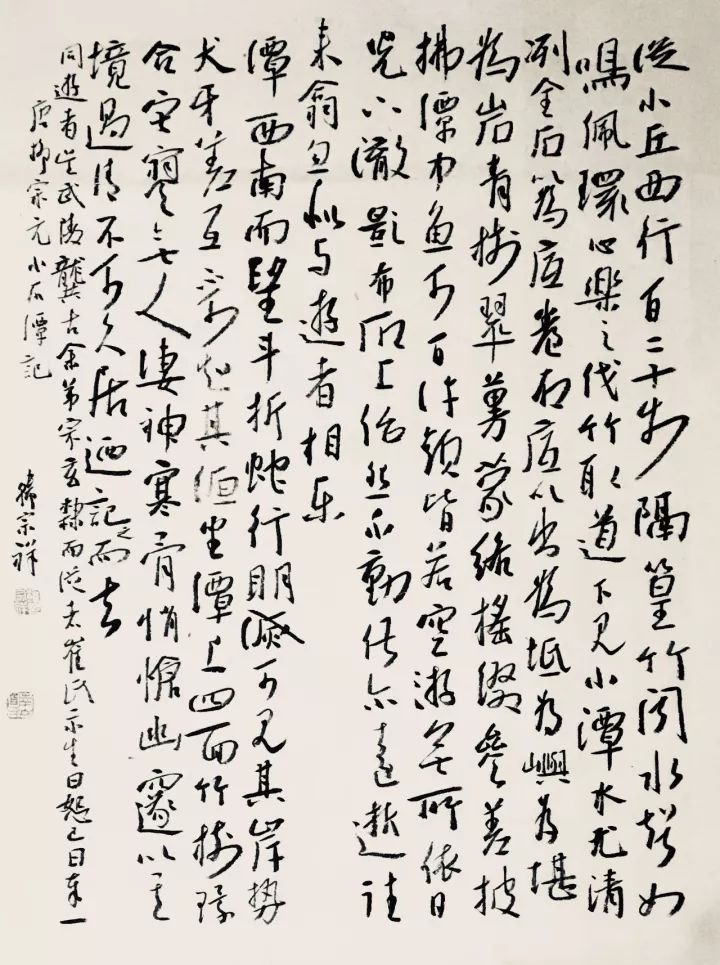 從小丘西行百二十步隔篁竹闻水聲如
鳴佩環心樂之伐竹取道下見小潭水尤清
冽全石以為底卷石底以出為坻為嶼為堪
為岩青樹翠蔓蒙絡搖綴參差披
拂潭中魚可百許頭皆若空游無所依日
光下澈影布石上佁然不動俶尔遠逝往
来翕忽似与遊者相乐
潭西南而望斗折蛇行明滅可見其岸勢
犬牙差互不可知其源坐潭上四面竹樹環
合寂寥無人凄神寒骨悄愴幽邃以其
境過清不可久居迺記之而去
同遊者吴武陵龔古余弟宗玄隸而從者崔氏二小生曰恕己曰奉一
唐柳宗元小石潭記
宗祥